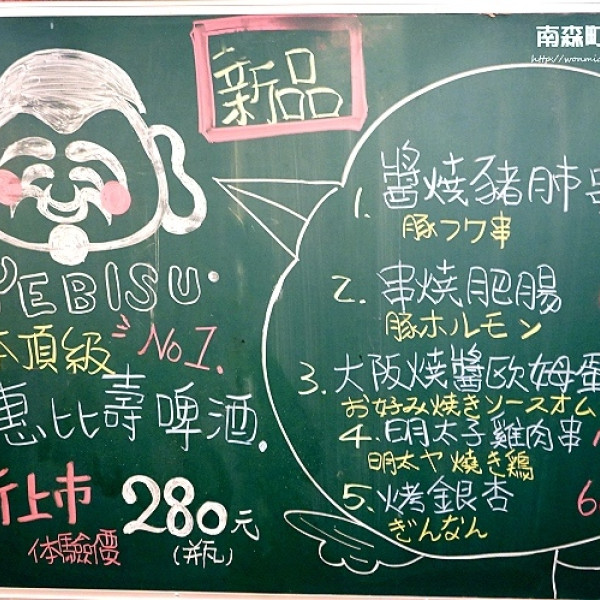 南森町
新品
YEBISU
頂級 No1.
惠比壽啤酒.
上市
280元
體驗價
(瓶)
1. 醬燒豬肺
豚フワ串
2. 串燒肥腸
豚ホルモン
3. 大阪燒醬歐姆蛋
お好み焼きソースオム
4. 明太子雞肉串
明太ヤ燒き鶏
5. 烤銀杏 6
ぎんなん